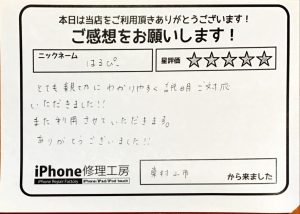 本日は当店をご利用頂きありがとうございます!
ご感想をお願いします!
ニックネーム
はるぴー
星評価
☆☆☆☆☆
とても親切に わかりやすく 説明 ご対応
いただきました!!
また利用させていただきます。
ありがとうございました!!
iPhone修理工房
iPhone Repair Factory
iPhone/iPad/iPod touch
東村山市
から来ました